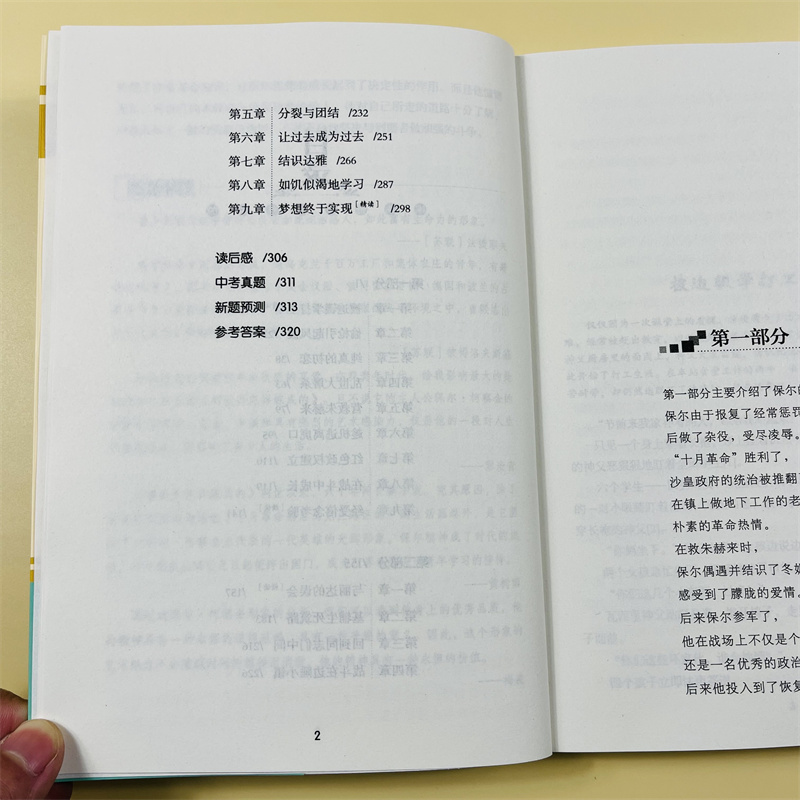 第五章 分裂与团结 /232
第六章 让过去成为过去 /251
第七章 结识达雅 /266
第八章 如饥似渴地学习 /287
第九章 梦想终于实现[精读] /298
读后感 /306
中考真题 /311
新题预测 /313
参考答案 /320
2
第一部分
第一部分主要介绍了保尔的
保尔由于报复了经常惩罚
后做了杂役，受尽凌辱。
“十月革命”胜利了，
沙皇政府的统治被推翻
在镇上做地下工作的老
朴素的革命热情。
在救朱赫来时，
保尔偶遇并结识了冬
感受到了朦胧的爱情。
后来保尔参军了，
他在战场上不仅是个
还是一名优秀的政治
后来他投入到了恢复